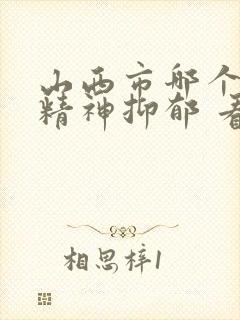 山西市哪个
精神抑郁 看
相思梓1